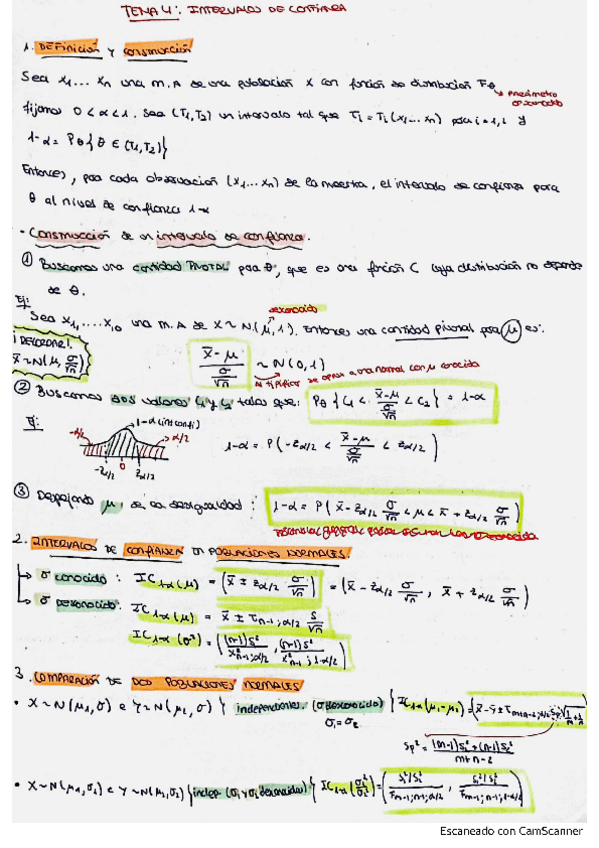 TEMA 4: INTERVALOS DE CONFIANZA
1. DEFINICIÓN Y CONSTRUCCIÓN
Sea x₁... xₙ una m.A de una población X con función de distribución Fθ
parámetro
desconocido
fijamos 0 < α < 1. Sea (T₁,T₂) un intervalo tal que Ti = Ti (x₁... xₙ) para i = 1, 2 y
1-α = Pθ { θ ∈ (T₁,T₂)}
Entonces, para cada observación (x₁... xₙ) de la muestra, el intervalo de confianza para
θ al nivel de confianza 1-α
- Construcción de un intervalo de confianza.
① Buscamos una cantidad PIVOTAL para θ, que es una función C cuya distribución no depende
de θ.
Ej:
desconocido
Sea x₁, ..., x₁₀ una m.A de X ~ N(μ, 1). Entonces una cantidad pivotal para μ es:
¡RECORDAR!
x̄ ~ N(μ, σ/√n)
(x̄ - μ)/(σ/√n) ~ N(0,1)
tipificar se opera a una normal con μ conocida
② Buscamos dos valores C₁ y C₂ tales que: Pθ { C₁ < (x̄-μ)/(σ/√n) < C₂ } = 1-α
Ej:
1-α (int confi)
-α/2 α/2
-z α/2 0 z α/2
1-α = P( -z α/2 < (x̄-μ)/(σ/√n) < z α/2 )
③ Despejando μ, en esa desigualdad: 1-α = P( x̄ - z α/2 σ/√n < μ < x̄ + z α/2 σ/√n )
2. INTERVALOS DE CONFIANZA en POBLACIONES NORMALES
→ σ conocido: IC 1-α (μ) = ( x̄ ± z α/2 σ/√n ) = ( x̄ - z α/2 σ/√n , x̄ + z α/2 σ/√n )
→ σ desconocido: IC 1-α (μ) = x̄ ± τ n-1; α/2 S/√n
IC 1-α (σ²) = ( (n-1)s²/χ² n-1; α/2 , (n-1)s²/χ² n-1; 1-α/2 )
3. COMPARACIÓN DE DOS POBLACIONES NORMALES
• X ~ N(μ₁, σ) e Y ~ N(μ₂, σ) } independientes. (σ desconocido) { IC 1-α (μ₁-μ₂) = ( x̄ - ȳ ± τ m+n-2; α/2 Sp √(1/m + 1/n)
σ₁ = σ₂
Sp² = ((m-1)s₁² + (n-1)s₂²)/(m+n-2)
• X ~ N(μ₁, σ₁) e Y ~ N(μ₂, σ₂) } indep (σ₁ y σ₂ desconocidos) { IC 1-α (σ₁²/σ₂²) = ( (s₁²/s₂²)/(F m-1; n-1; α/2) , (s₁²/s₂²)/(F m-1; n-1; 1-α/2) )
Escaneado con CamScanner